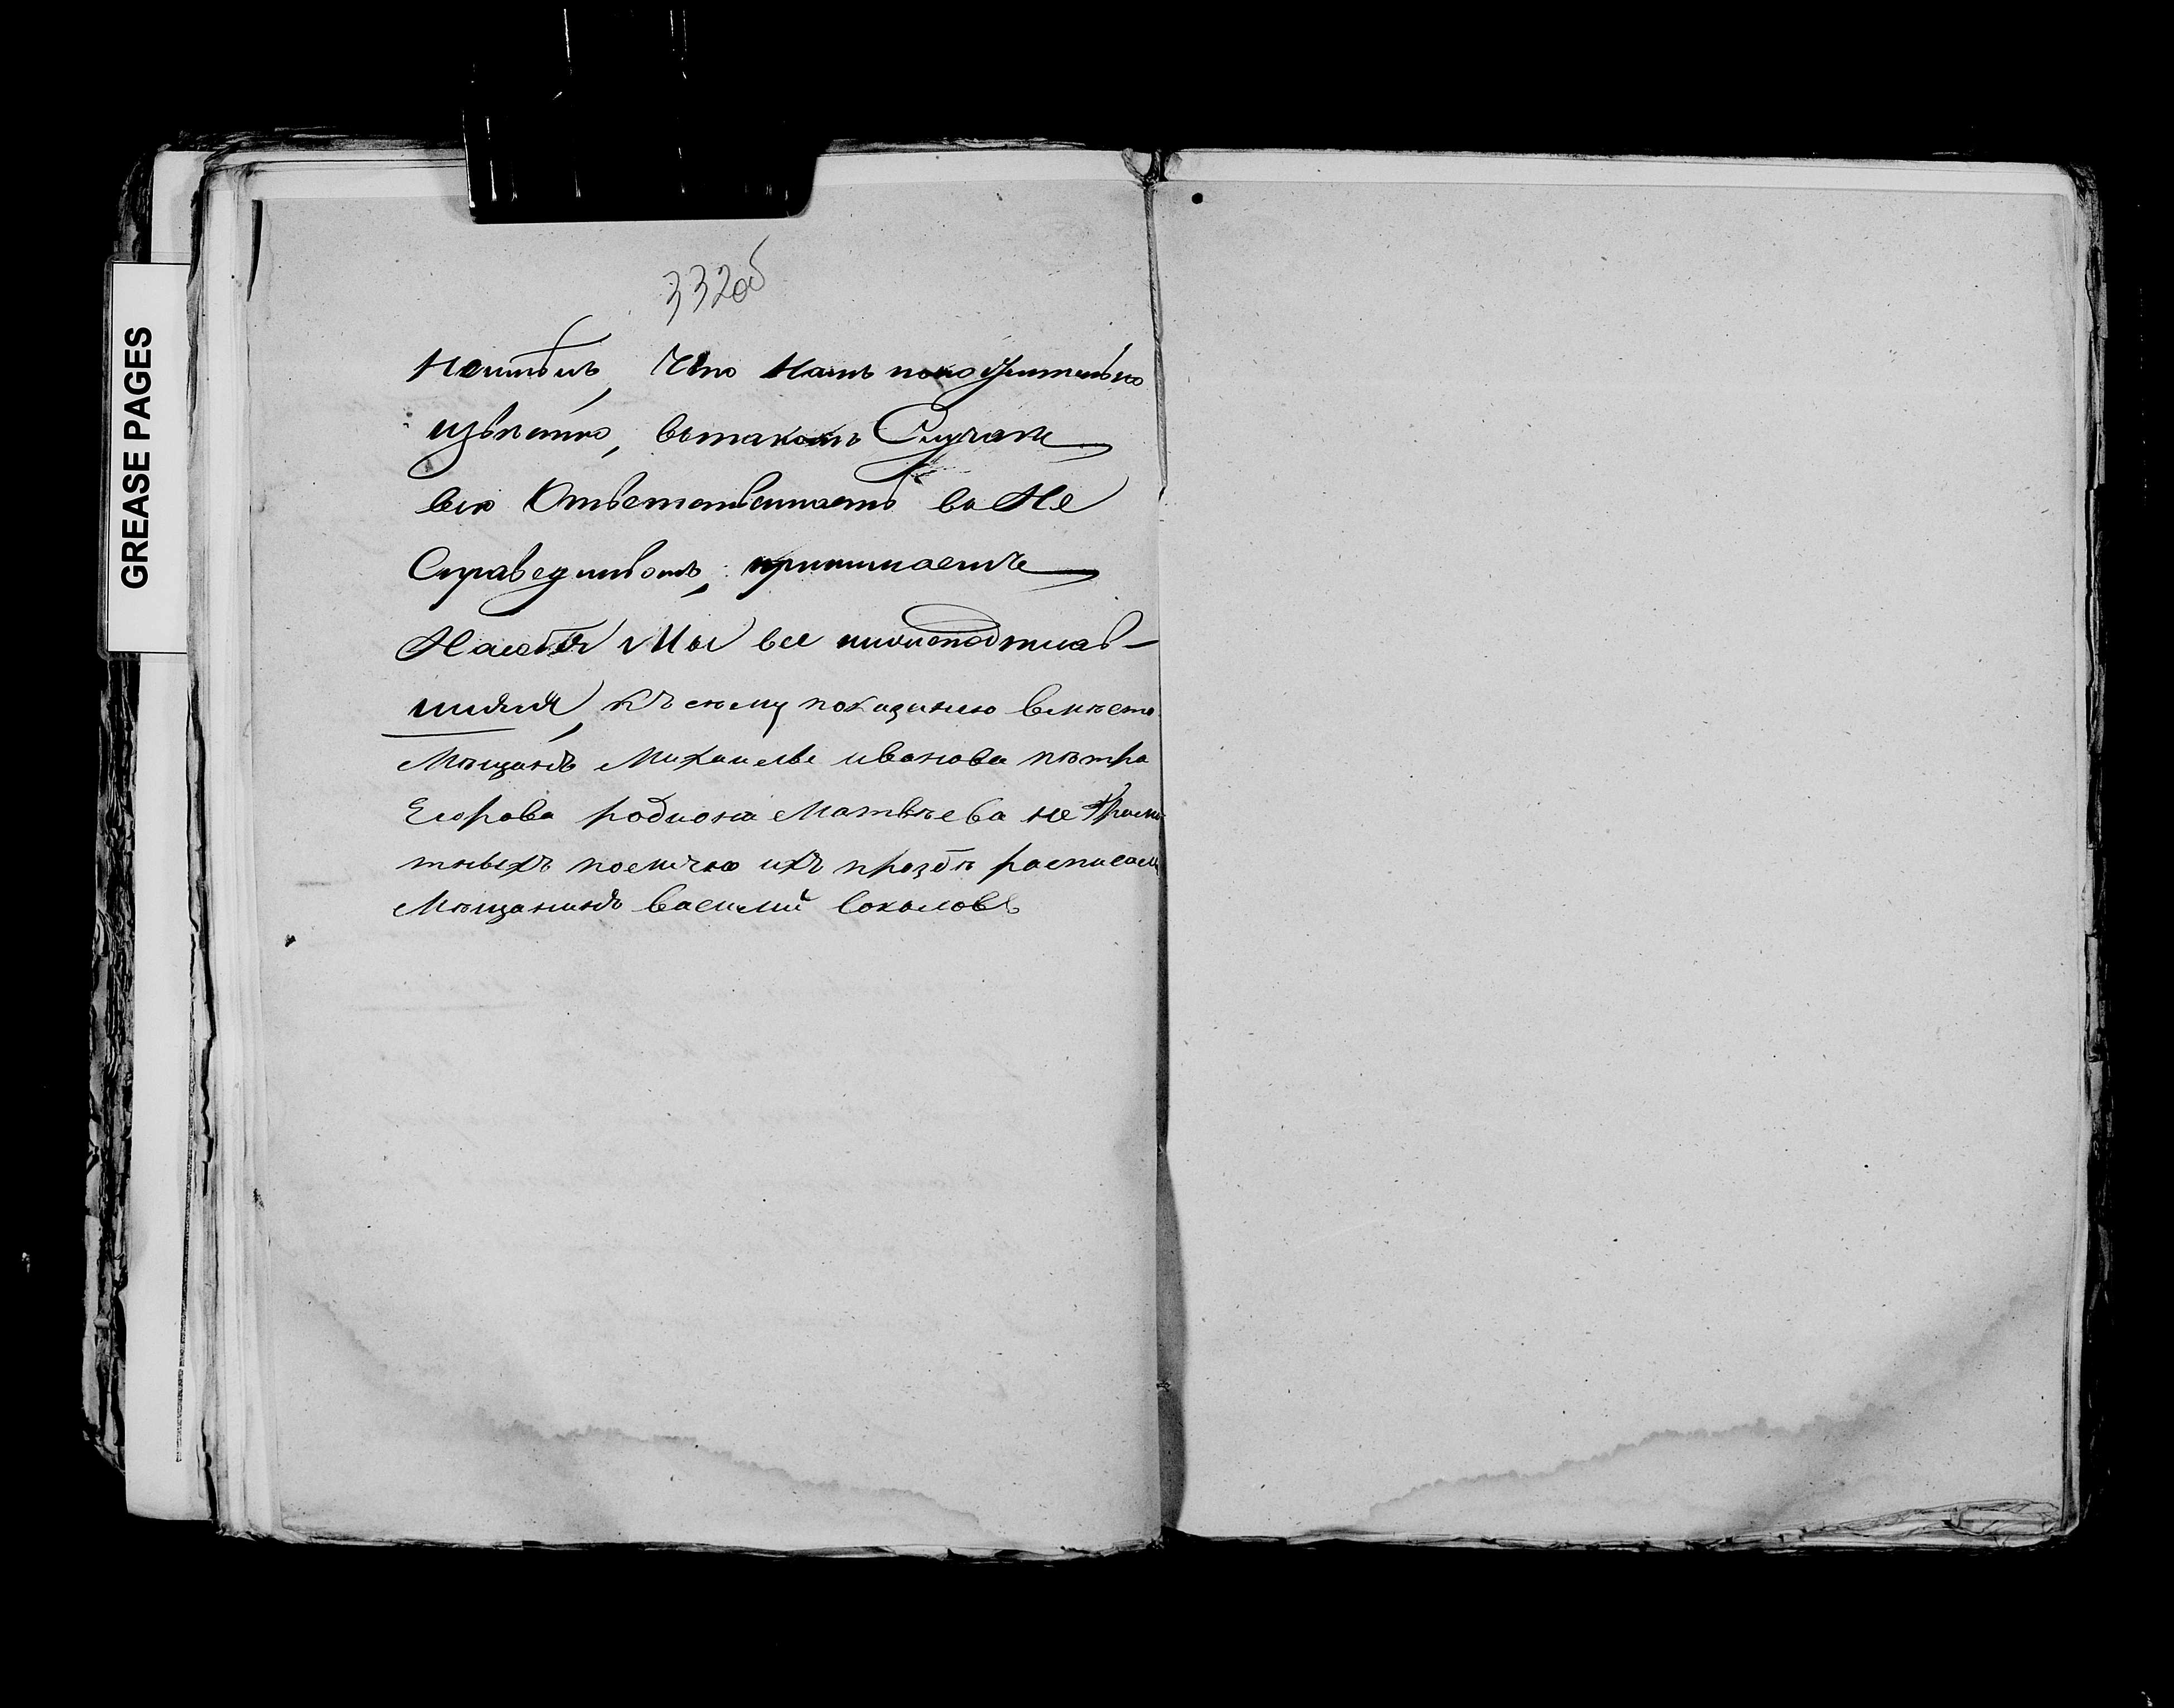 GREASE PAGES
332об
Что намъ положительно
извѣстно, вътакомъ Случаѣ
всю Ответственность во не
Справедливомъ, принимаемъ
Насебя Мы все нижеподписав-
шияся, къ сему показанию вмѣсто
Мѣщанъ Михаилы иванова пѣтра
Егорова родиона Матвѣева не грамо
тныхъ полично ихъ прозбѣ росписалъ
Мѣщанинъ василий соколовъ